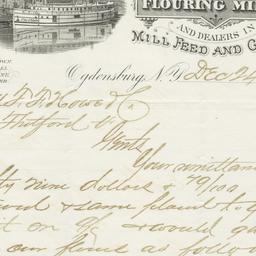 FLOURING MIL
AND DEALERS IN
MILL FEED AND G
Ogdensburg, N.Y. Dec 24
Thetford Vt
Gents
Your remittan
nine dollars & 70/100
& same placed to y
it on a/c & would qu
our flour as follow